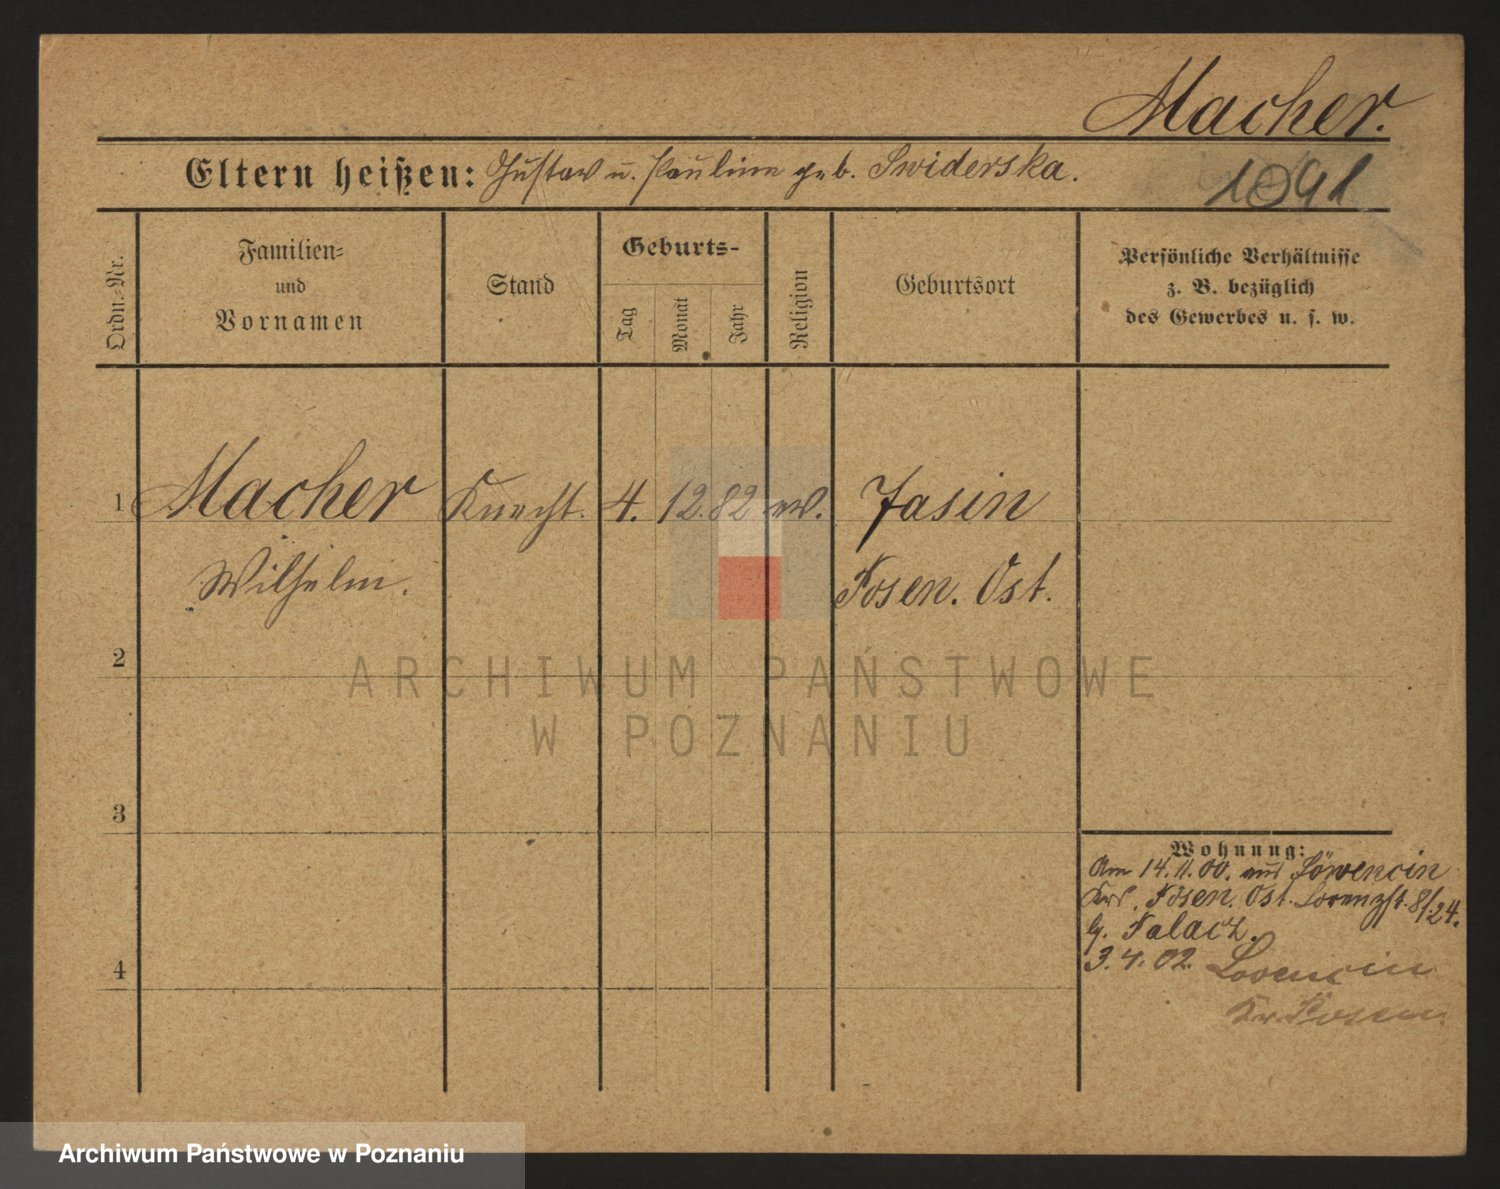 Macher.
Eltern heißen: Gustav u. Pauline geb. Swiderska.
1091
Ordn.-Nr.
Familien-
und
Vornamen
Stand
Geburts-
Tag
Monat
Jahr
Religion
Geburtsort
Persönliche Verhältnisse
z. B. bezüglich
des Gewerbes u. s. w.
1 Macher Knecht. 4. 12. 82 ev. Jasin
Wilhelm. Posen. Ost.
2
ARCHIWUM PAŃSTWOWE
W POZNANIU
3
Wohnung:
Am 14.11.00. aus
Krs. Posen. Ost. Lorenzst. 8/24.
b. Palacz.
4
3.4.02.
Kr. Posen
Archiwum Państwowe w Poznaniu